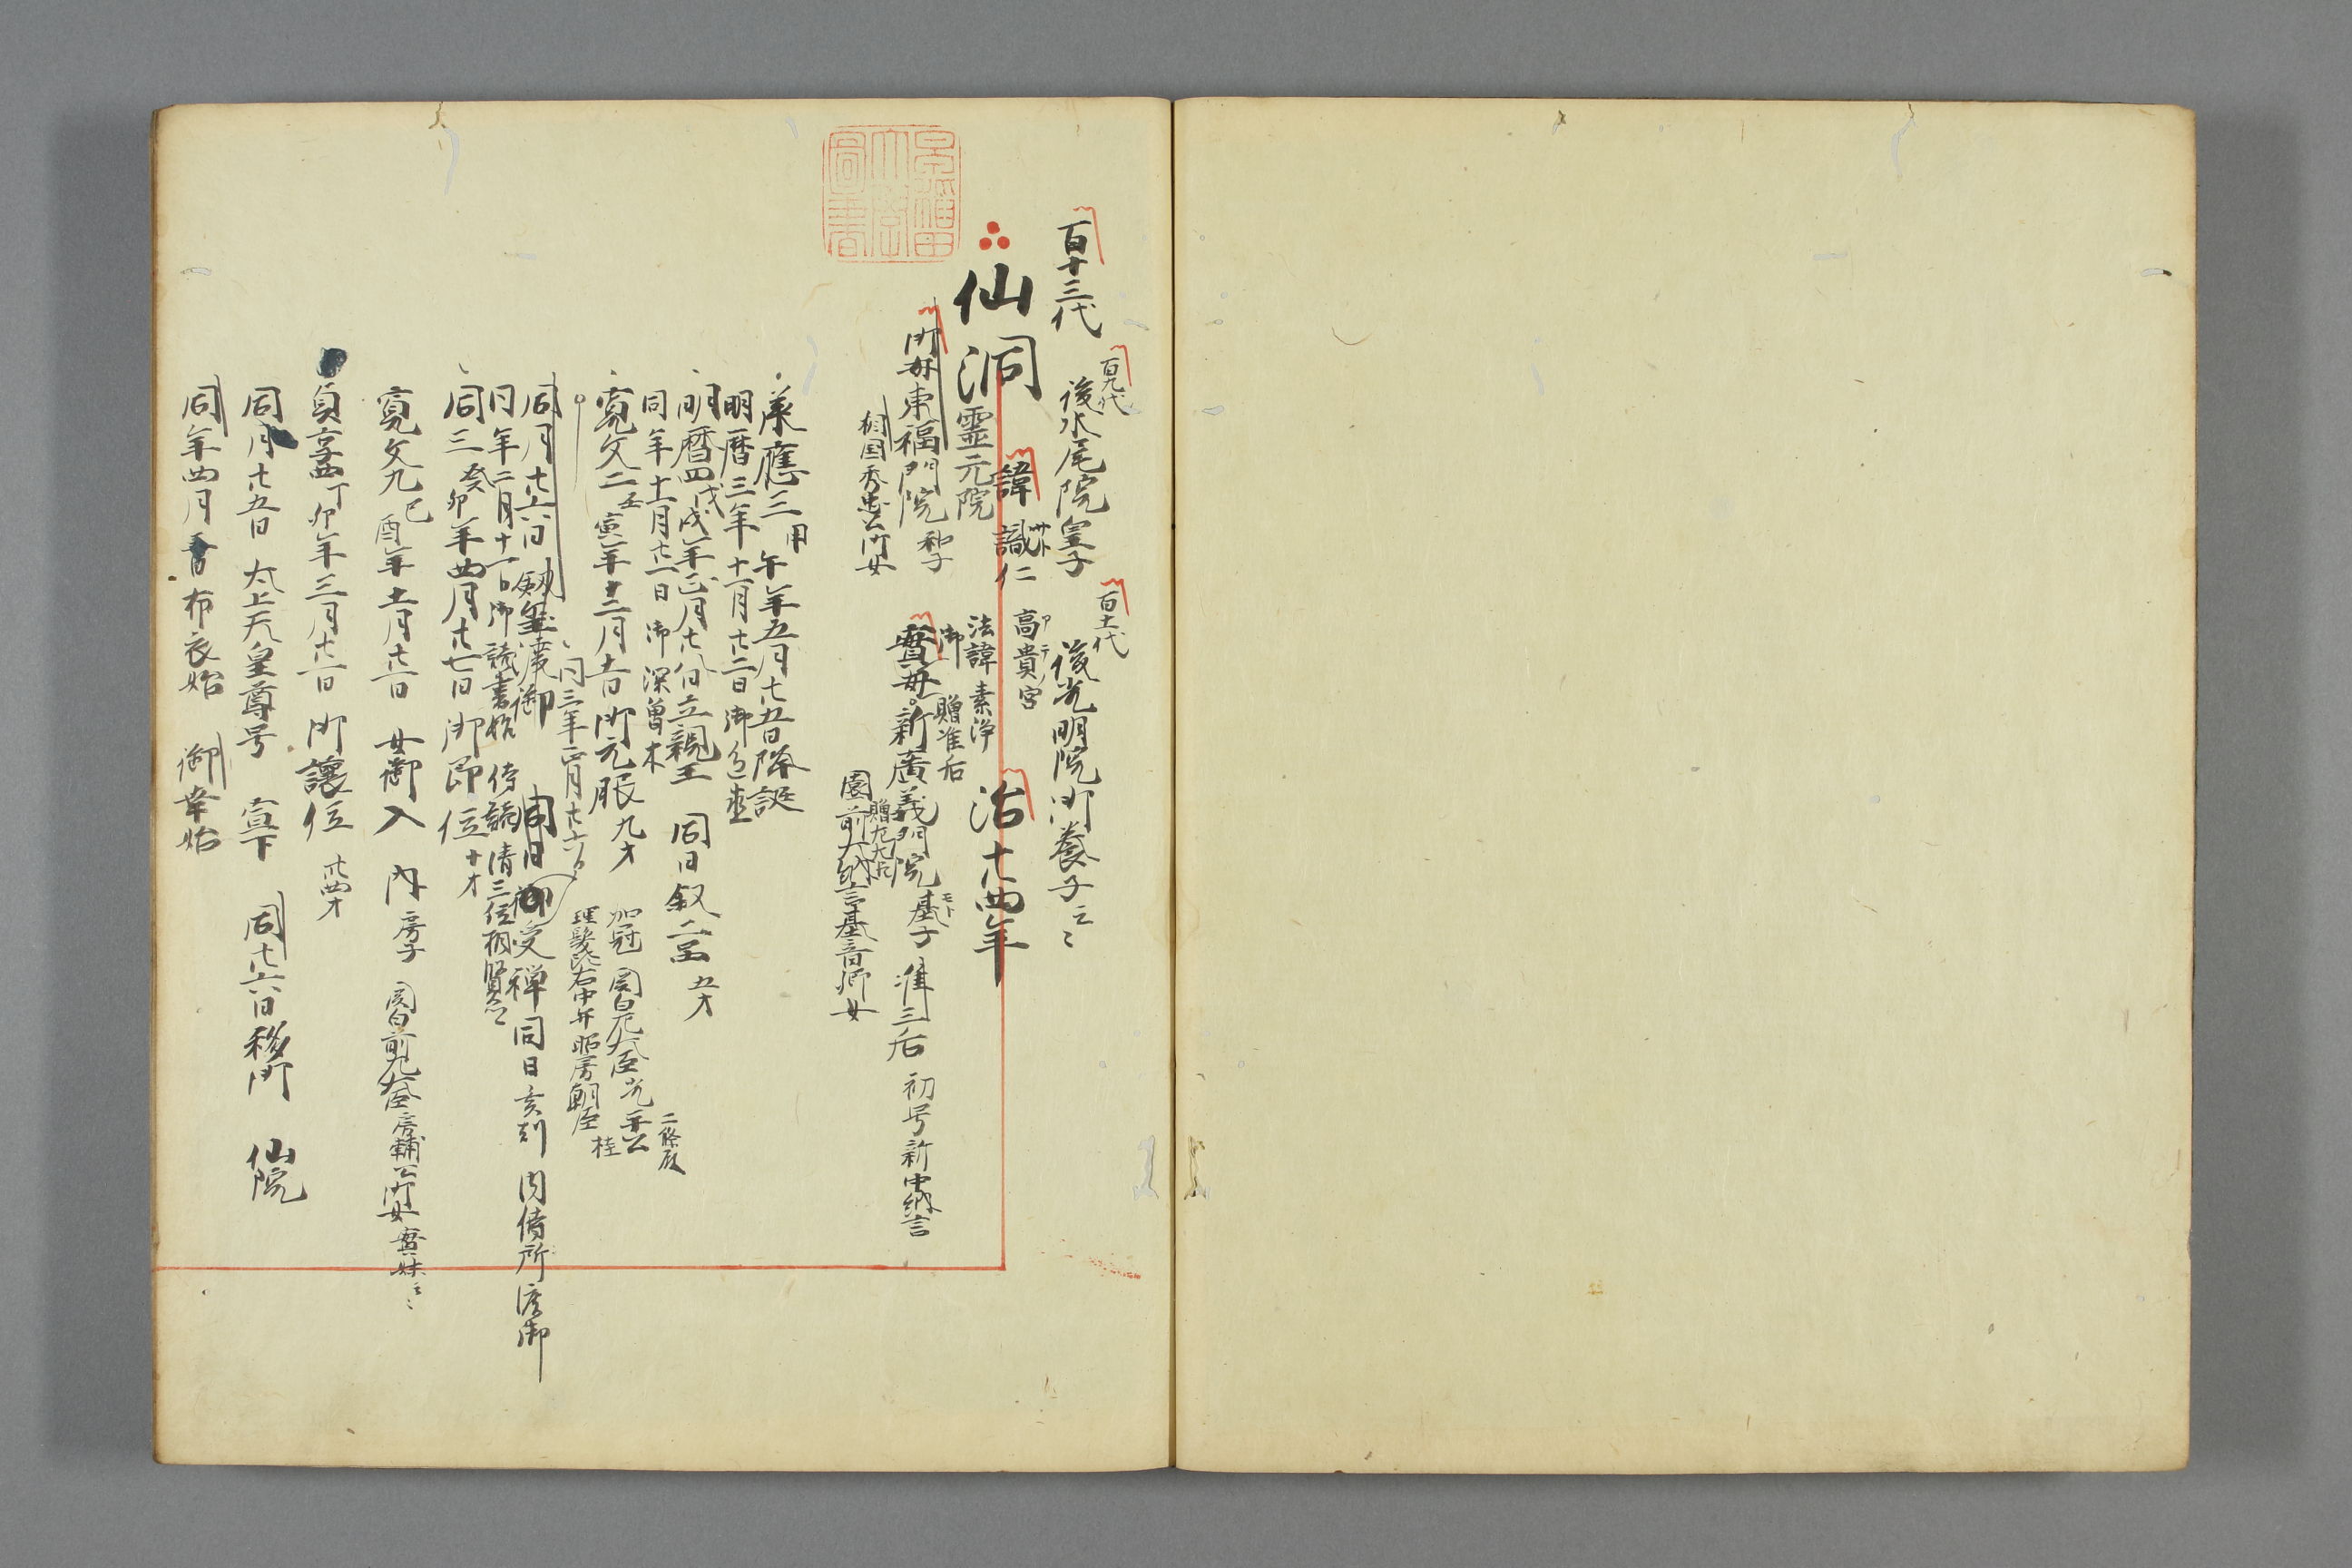 百十三代
百九代
後水尾院皇子
百十一代
後光明院御養子云々
仙洞
霊元院
諱
識仁
サト
高貴宮
アテノ
法諱素浄
治廿四年
御母東福門院
和子
相国秀忠公御女
御
実母新廣義門院
贈准后
基子
モト
准三后
初号新中納言
園前大納言基音卿女
贈左大臣
承應三甲午年五月廿五日降誕
明暦三年十一月廿二日御色直
明暦四戊戌年正月廿八日立親王
同日叙二品
五才
同年十二月廿一日御深曽木
寛文二壬寅年十二月十一日御元服
九才
加冠
関白左大臣光平公
二條殿
理髪
右中弁昭房朝臣
桂
同三年正月廿六日
同月廿六日剱璽渡御
同日御受禅同日亥刻
内侍所渡御
同年二月十一日御読書始
侍読清三位相賢云々
同三癸卯年四月廿七日御即位
十才
寛文九己酉年十一月廿一日女御入内
房子
関白前左大臣房輔公御女実妹云々
貞享四丁卯年三月廿一日御譲位
廿四才
同月廿五日太上天皇尊号宣下
同廿六日移御
仙院
同年四月
布衣始
御幸始